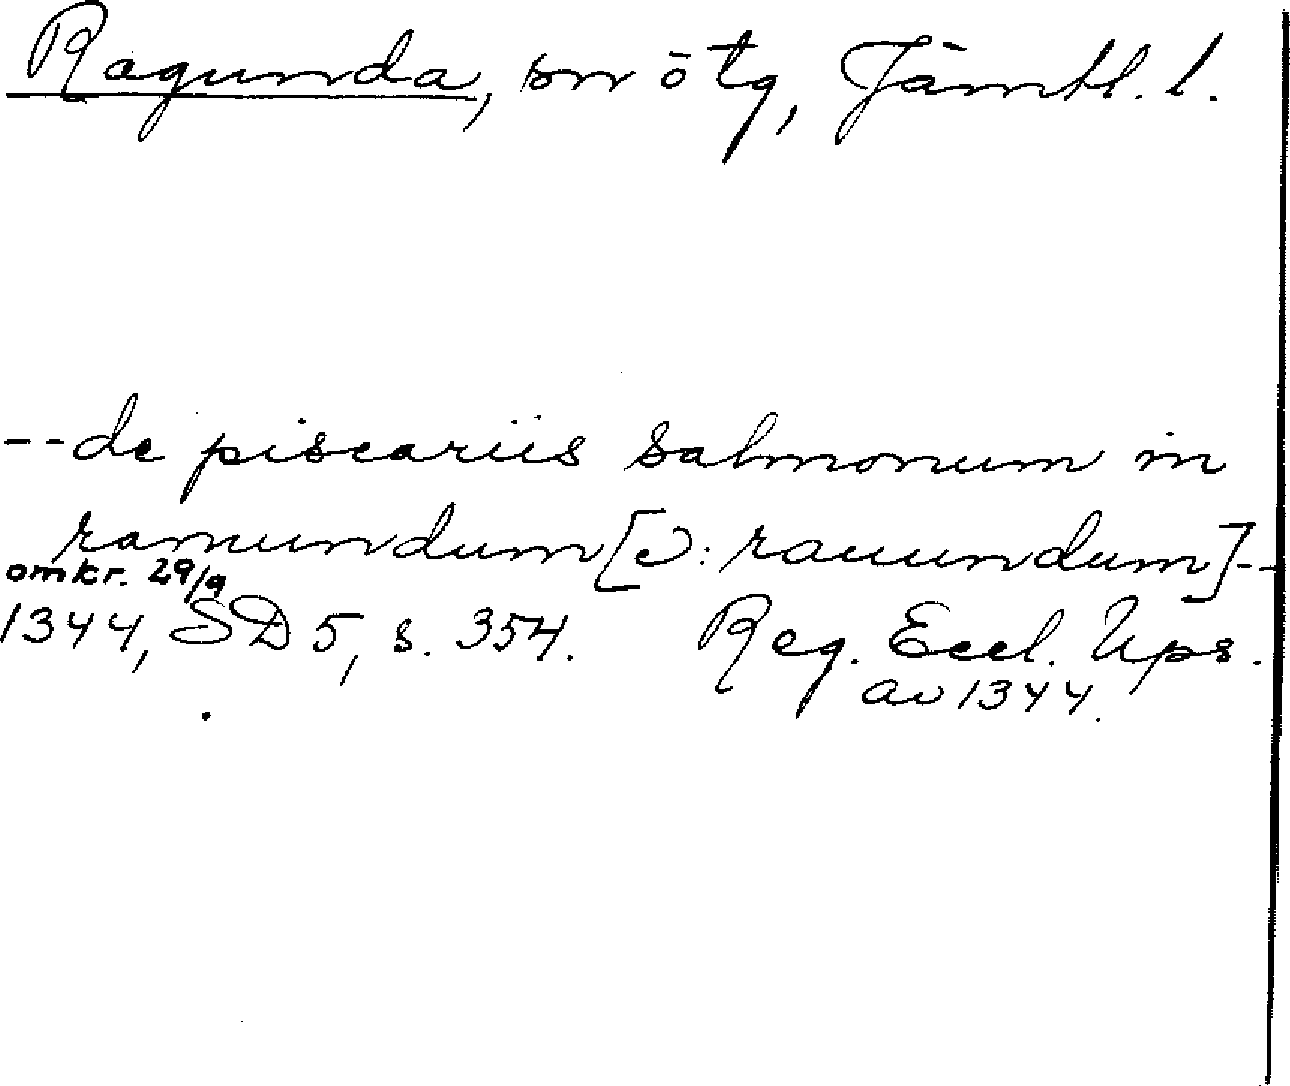 Ragunda, sn ö tg, Jämtl. l.
-- de piscariis salmonum in
ramundum [ɔ: rauundum] --
omkr. 29/9
1344, SD 5, s. 354. Reg. Eccl. Ups.
av 1344.